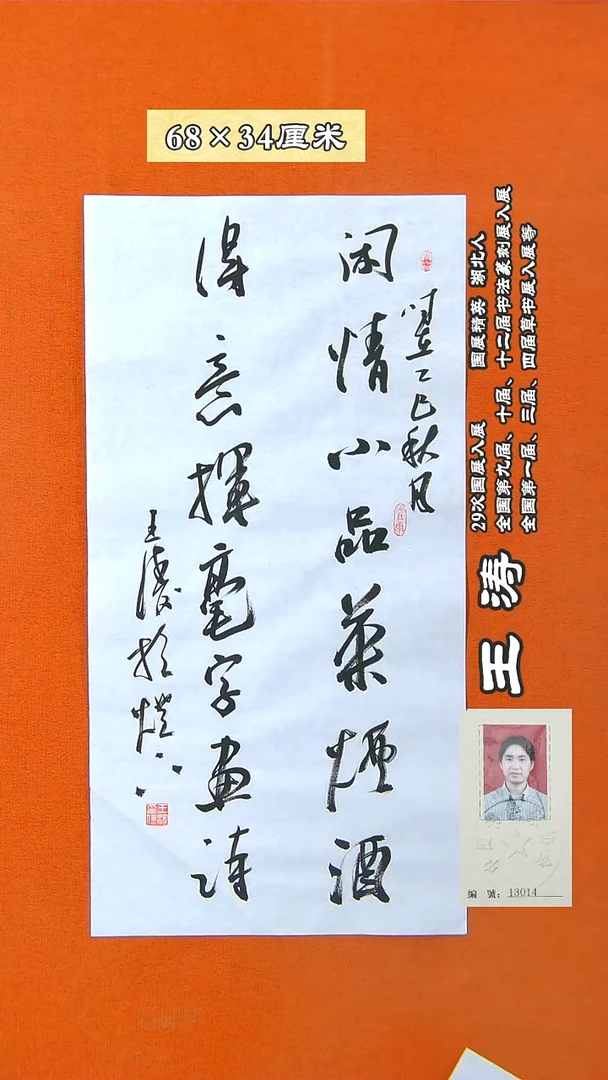 68×34厘米
時在乙巳秋月
閑情小品茶煙酒
得意揮毫字畫詩
王濤於燈下
29次国展入展 国展精英 湖北人
全国第九届、十届、十二届书法篆刻展入展
全国第一届、三届、四届草书展入展等
王涛
编 號: 13014